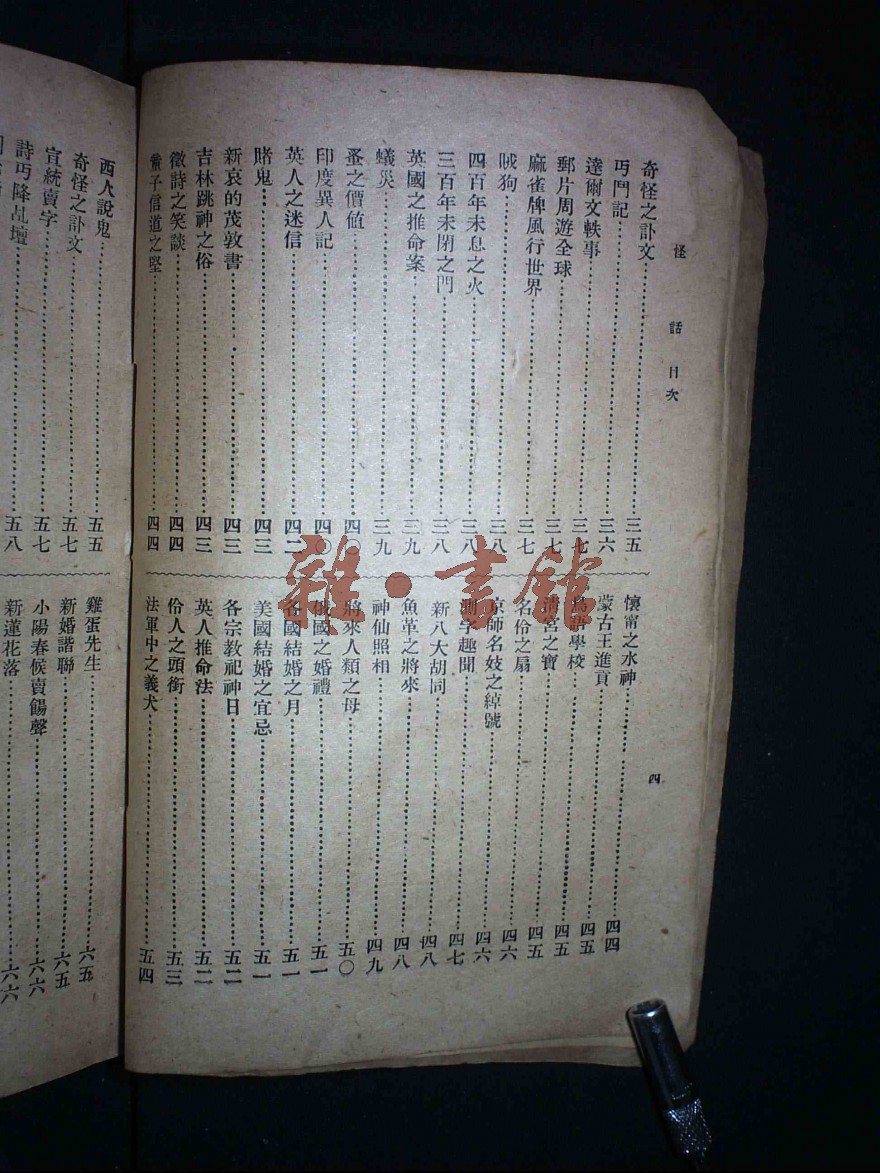 怪話目次
四
奇怪之訃文三五
丐鬥記三六
達爾文軼事三七
郵片周遊全球三七
麻雀牌風行世界三七
賊狗三八
四百年未息之火三八
三百年未閉之門三八
英國之推命案三九
蟻災三九
蚤之價値四〇
印度異人記四〇
英人之迷信四二
賭鬼四三
新哀的茂敦書四三
吉林跳神之俗四三
徵詩之笑談四四
童子信道之堅四四
懷甯之水神四四
蒙古王進貢四五
鳥語學校四五
淸宮之寶四五
名伶之扇四六
京師名妓之綽號四六
測字趣聞四七
新八大胡同四八
魚革之將來四八
神仙照相四九
將來人類之母五〇
俄國之婚禮五一
各國結婚之月五一
美國結婚之宜忌五一
各宗敎祀神日五二
英人推命法五二
伶人之頭銜五三
法軍中之義犬五四
西人說鬼五五
奇怪之訃文五七
宣統賣字五七
詩丐降乩壇五八
雞蛋先生六五
新婚諧聯六五
小陽春候賣餳聲六六
新蓮花落六六
雜·書館